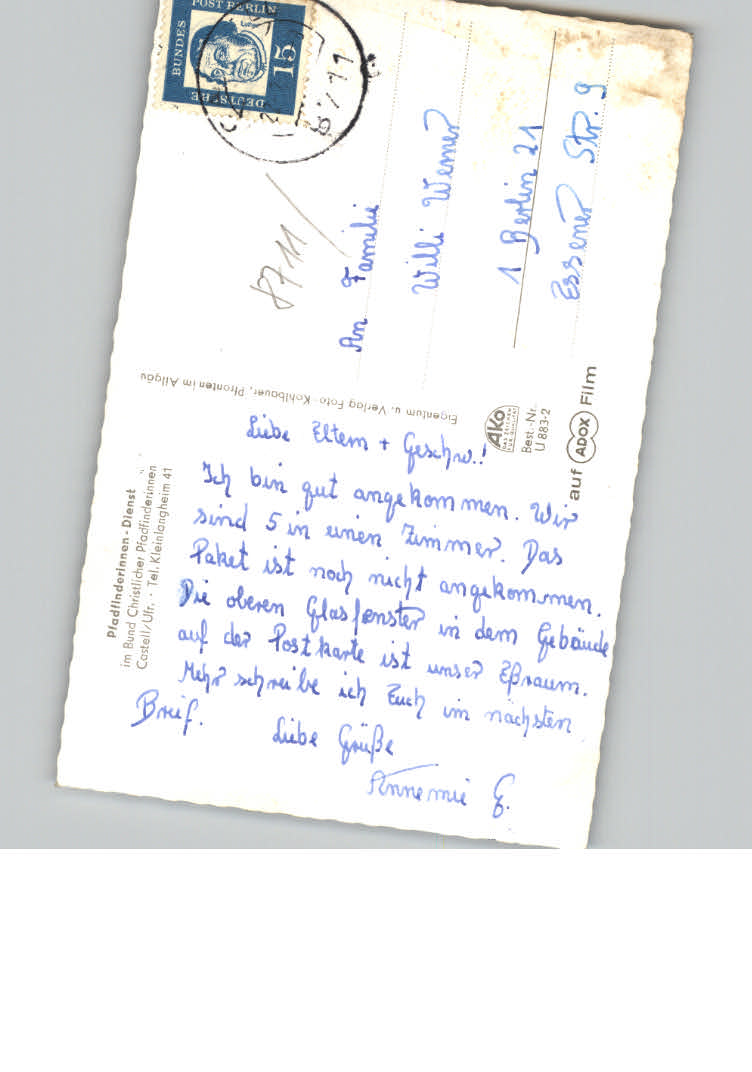 Pfadfinderinnen-Dienst
im Bund Christlicher Pfadfinderinnen
Castell/Ufr. · Tel. Kleinlangheim 41
Liebe Eltern + Geschw.!
Ich bin gut angekommen. Wir
sind 5 in einen Zimmer. Das
Paket ist noch nicht angekommen.
Die oberen Glasfenster in dem Gebäude
auf der Postkarte ist unser Eßraum.
Mehr schreibe ich Euch im nächsten
Breif.
Liebe Grüße
Annemie G.
Eigentum u. Verlag Foto-Kohlbauer, Pfronten im Allgäu
AKO
DAS ZEICHEN
FÜR QUALITÄT
Best.-Nr.
U 883-2
auf ADOX Film
DEUTSCHE BUNDESPOST BERLIN
15
8711
An Familie
Willi Werner
1 Berlin 21
Essener Str. 9